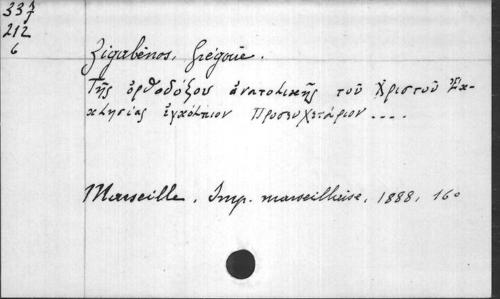 337
212
6
Zigabénos, Grégoire.
Τῆς ὀρθοδόξου ἀνατολικῆς τοῦ Χριστοῦ Ἐκ-
κλησίας ἐγκόλπιον Προσευχητάριον ....
Marseille, Imp. marseillaise, 1888, 16°